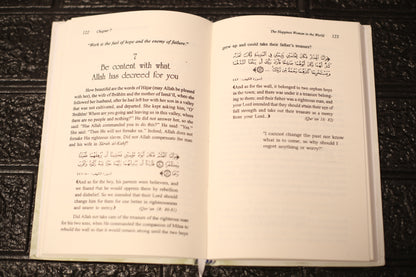 122 Chapter 7
"Work is the fuel of hope and the enemy of failure."
7
Be content with what
Allah has decreed for you
How beautiful are the words of Hâjar (may Allah be pleased
with her), the wife of Ibrâhîm and the mother of Ismâ'îl, when she
followed her husband, after he had left her with her son in a valley
that was not cultivated, and departed. She kept asking him, "O'
Ibrâhîm! Where are you going and leaving us in this valley, where
there are no people and nothing?" He did not answer her, so she
said: "Has Allah commanded you to do this?" He said: "Yes."
She said: "Then He will not forsake us." Indeed, Allah does not
forsake His righteous slaves. Did not Allah compensate the man
and his wife in Sûrah al-Kahf?
﴿And as for the boy, his parents were believers, and
we feared that he would oppress them by rebellion
and disbelief. So we intended that their Lord should
change him for them for one better in righteousness
and nearer to mercy.﴾
(Qur'an 18: 80-81)
Did Allah not take care of the treasure of the righteous man
for his two sons, when He commanded the companion of Mûsa to
rebuild the wall so that it would remain strong until the two boys
The Happiest Woman in the World 123
grew up and could take their father's treasure?
﴿And as for the wall, it belonged to two orphan boys
in the town; and there was under it a treasure belong-
ing to them; and their father was a righteous man, and
your Lord intended that they should attain their age of
full strength and take out their treasure as a mercy
from your Lord...﴾
(Qur'an 18: 82)
"I cannot change the past nor know
what is to come, so why should I
regret anything or worry?"